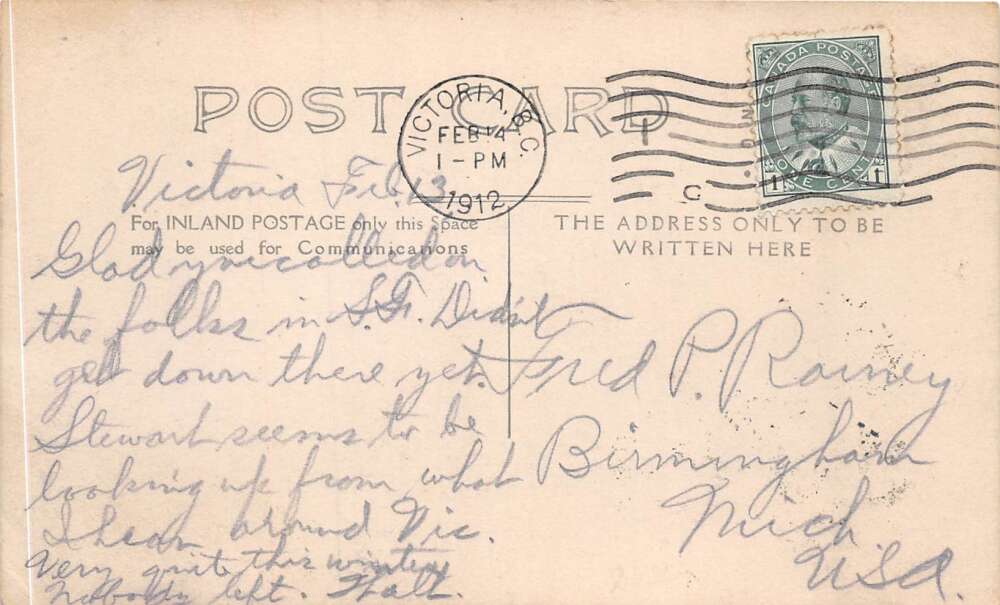 POST CARD
VICTORIA, B.C.
FEB 14
1 - PM
1912
CANADA POSTAGE
1 ONE CENT 1
C
Victoria Feb. 13
For INLAND POSTAGE only this Space
may be used for Communications
THE ADDRESS ONLY TO BE
WRITTEN HERE
Glad you called on
the folks in S.F. Didn't
get down there yet.
Stewart seems to be
looking up from what
I hear around Vic.
Very quite this winter
Nobody left. Walt.
Fred P. Rainey
Birmingham
Mich
USA.